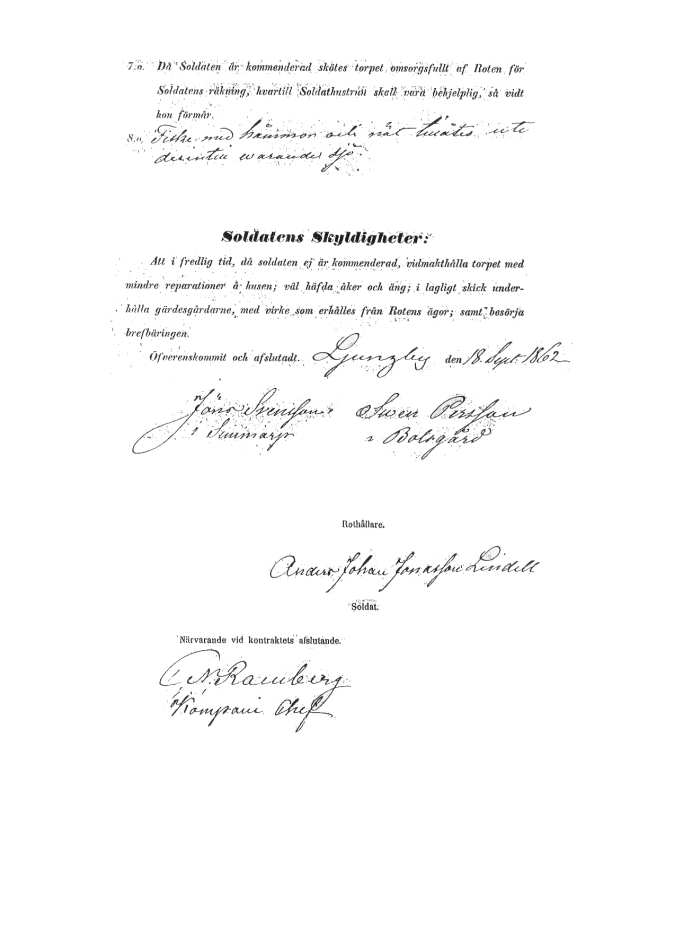 7.o. Då Soldaten är kommenderad skötes torpet omsorgsfullt af Roten för
Soldatens räkning, hvartill Soldathustrun skall vara behjelplig, så vidt
hon förmår.
8.o. Fiske med och nät ute
warande sjö.
Soldatens Skyldigheter:
Att i fredlig tid, då soldaten ej är kommenderad, vidmakthålla torpet med
mindre reparationer å husen; väl häfda åker och äng; i lagligt skick under-
hålla gärdesgårdarne, med virke som erhålles från Rotens ägor; samt besörja
brefbäringen.
Öfverenskommit och afslutadt. Ljungby den 18. Sept. 1862
Jöns Svensson Swen Persson
i i Bolsgård
Rothållare.
Anders Johan Jonasson Lindell
Soldat.
Närvarande vid kontraktets afslutande.
C N. Ramberg
Kompani Chef